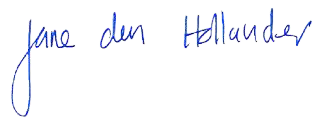 Jane den Hollander